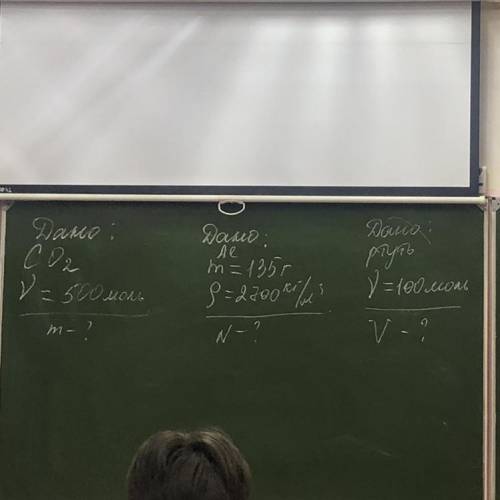 Дано:
CO2
ν = 500 моль
m - ?
Дано:
Al
m = 135 г
ρ = 2700 кг/м³
N - ?
Дано:
ртуть
ν = 100 моль
V - ?